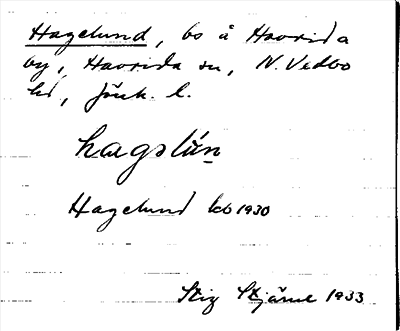 Hagelund, bs å Haurida
by, Haurida sn, N. Vedbo
hd, Jönk. l.
hagslún
Hagelund kb 1930
Stig Stjärne 1933